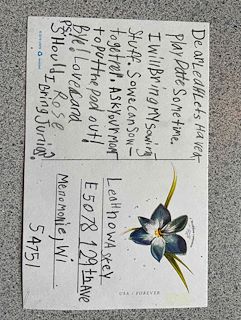 Dear Leah Lets Have a
Play Date Sometime.
I will Bring My Sowing
Stuff. So we can Sow-
together. Ask Your mom
to Put the pool out!
Bye! Love Lara
Rose
P.S. Should I Bring Junior?
Leah
E5078 129th Ave
Menomonie, Wi
54751
USA / FOREVER